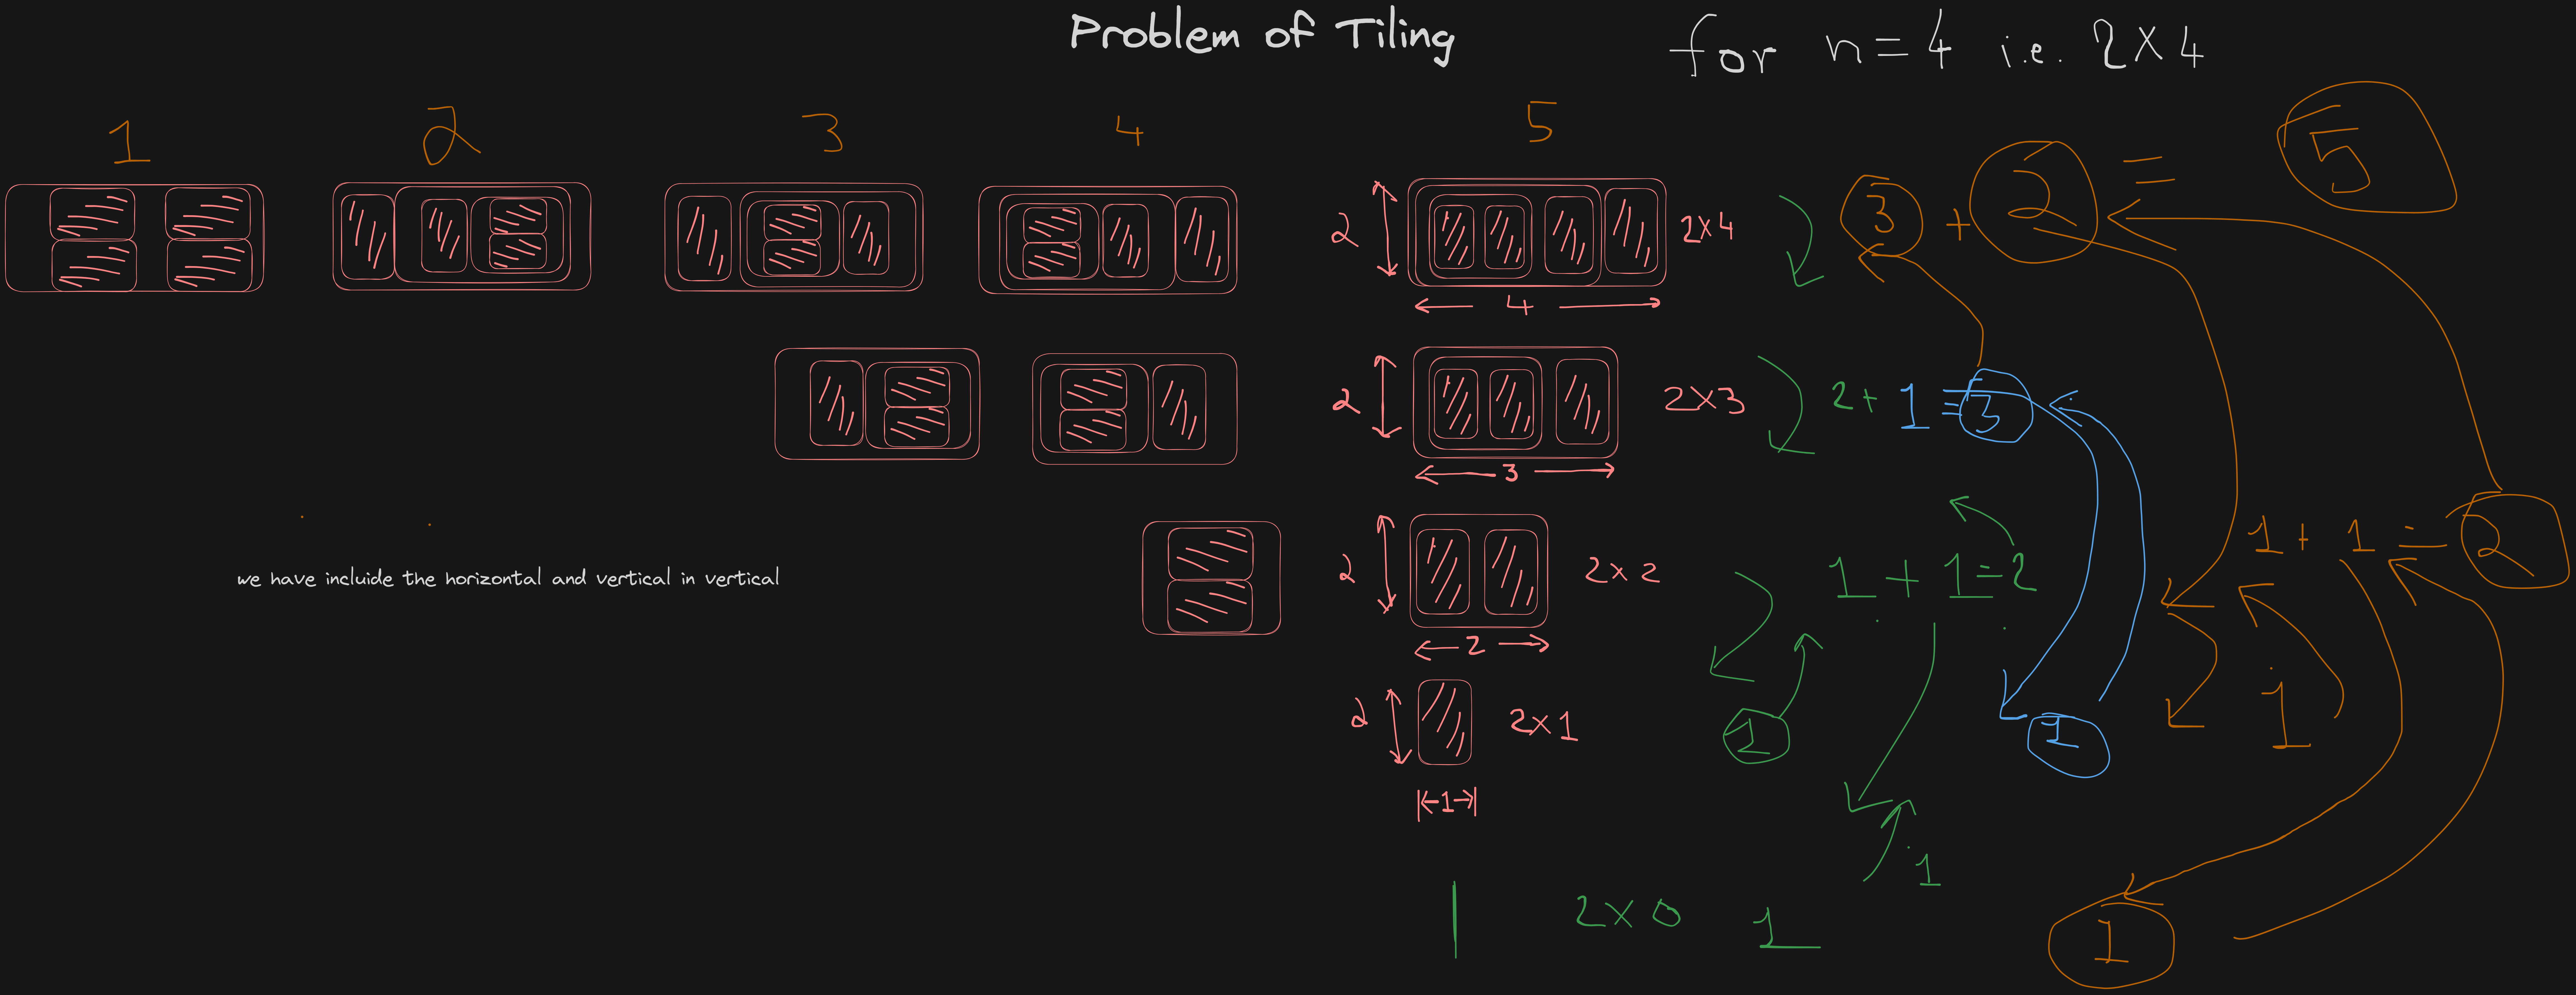 Problem of Tiling
for n=4 i.e. 2×4
1 2 3 4 5
2
2×4
4
3 + 2 = 5
2
2×3
3
2+ 1 =3
2
2×2
2
1+1=2
1 + 1 = 2
we have incluide the horizontal and vertical in vertical
2
2×1
1
1
1
1
1
2×0
1
1